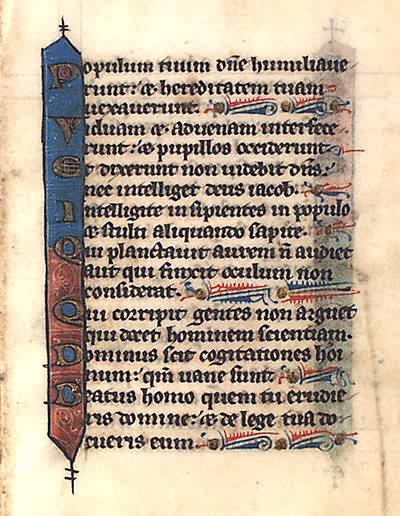 Populum tuum dñe humiliaue
runt: et hereditatem tuam
uexauerunt.
Viduam et aduenam interfece
runt: et pupillos occiderunt
Et dixerunt non uidebit dñs:
nec intelliget deus iacob.
Intelligite insipientes in populo
et stulti aliquando sapite.
Qui plantauit aurem ñ audiet
aut qui finxit oculum non
considerat.
Qui corripit gentes non arguet
qui docet hominem scientiam.
Dominus scit cogitationes hoi
num: qm̃ uane sunt.
Beatus homo quem tu erudie
ris domine: et de lege tua do
cueris eum.